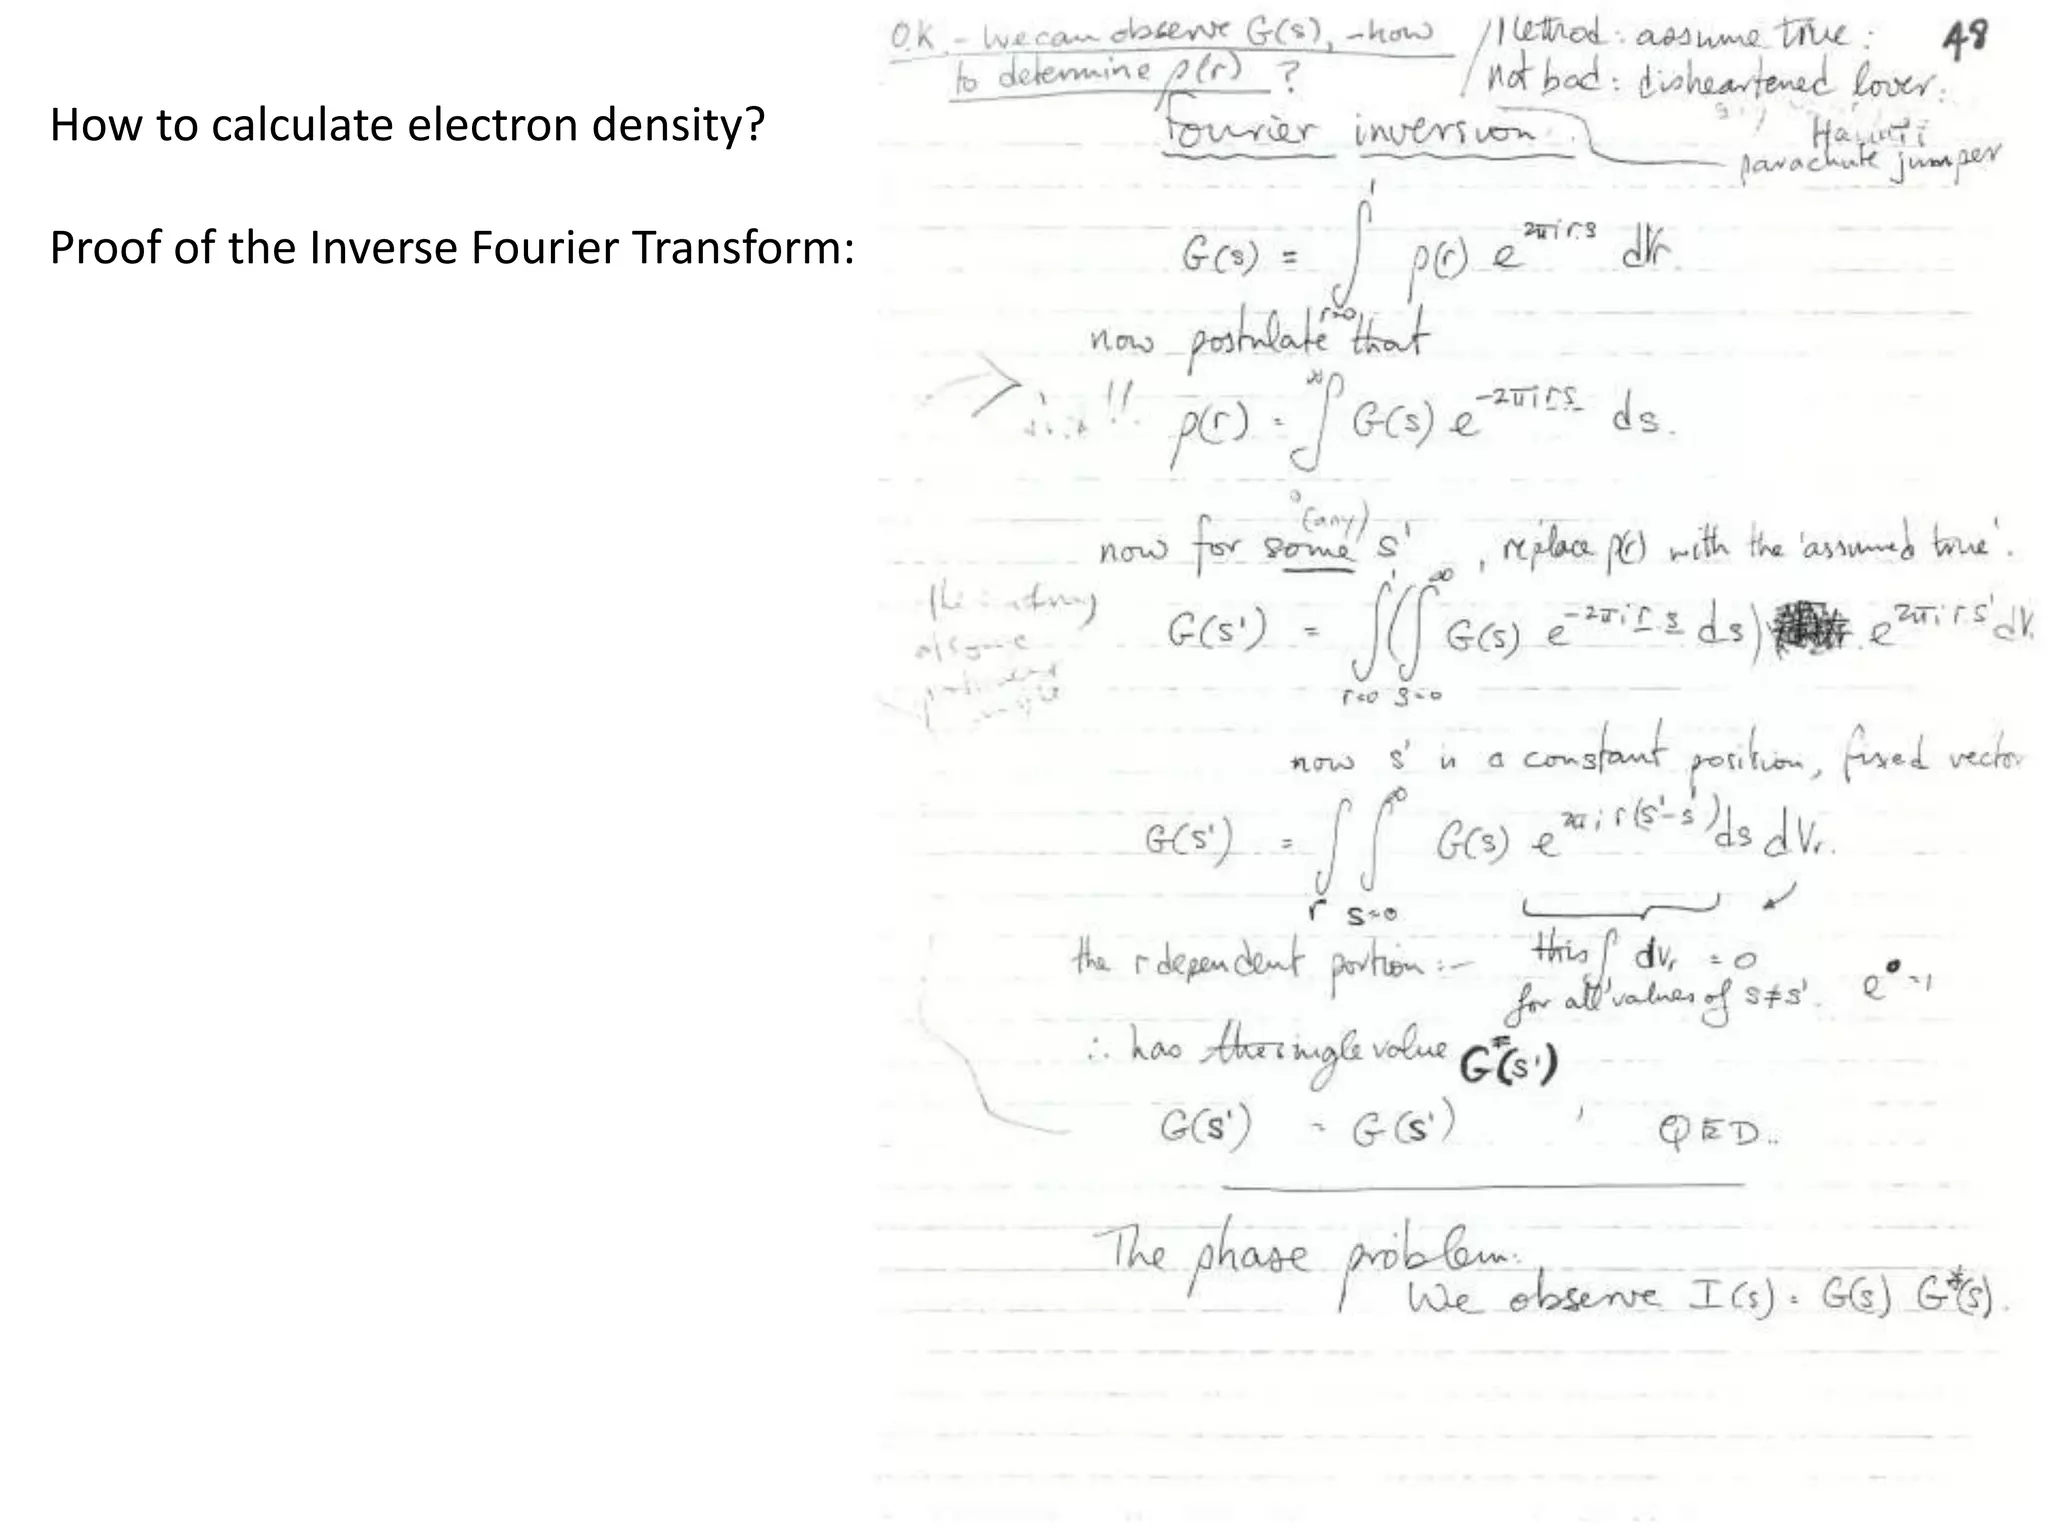 How to calculate electron density?
Proof of the Inverse Fourier Transform:
O.K. - we can observe G(s), - how
to determine ρ(r) ?
Method: assume true:
not bad: disheartened lover.
48
parachute jumper
Fourier inversion.
G(s) = ∫ ρ(r) e^{2πi r.s} dVr.
r=0
now postulate that
!! ρ(r) = ∫ G(s) e^{-2πi r.s} ds.
∞
0
(any)
now for some s', replace ρ(r) with the 'assumed true'.
G(s') = ∫(∫ G(s) e^{-2πi r.s} ds) e^{2πi r.s'} dV.
r=0 s=0
now s' is a constant position, fixed vector
G(s') = ∫∫ G(s) e^{2πi r(s'-s)} ds dVr.
r s=0
the r dependent portion :- this ∫ dVr = 0
for all values of s≠s'. e⁰=1
∴ has the single value G*(s')
G(s') = G(s') QED..
The phase problem:
We observe I(s) = G(s) G*(s).